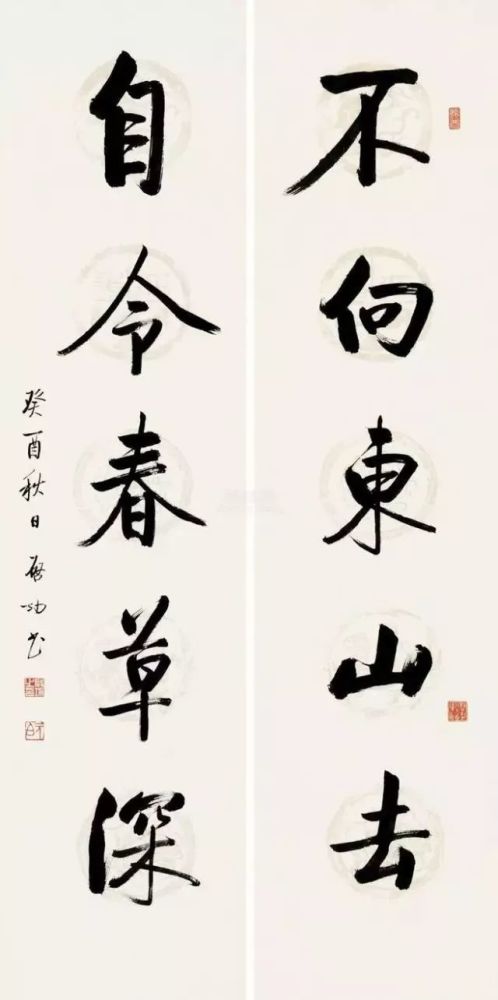 不向東山去
自令春草深
癸酉秋日启功书